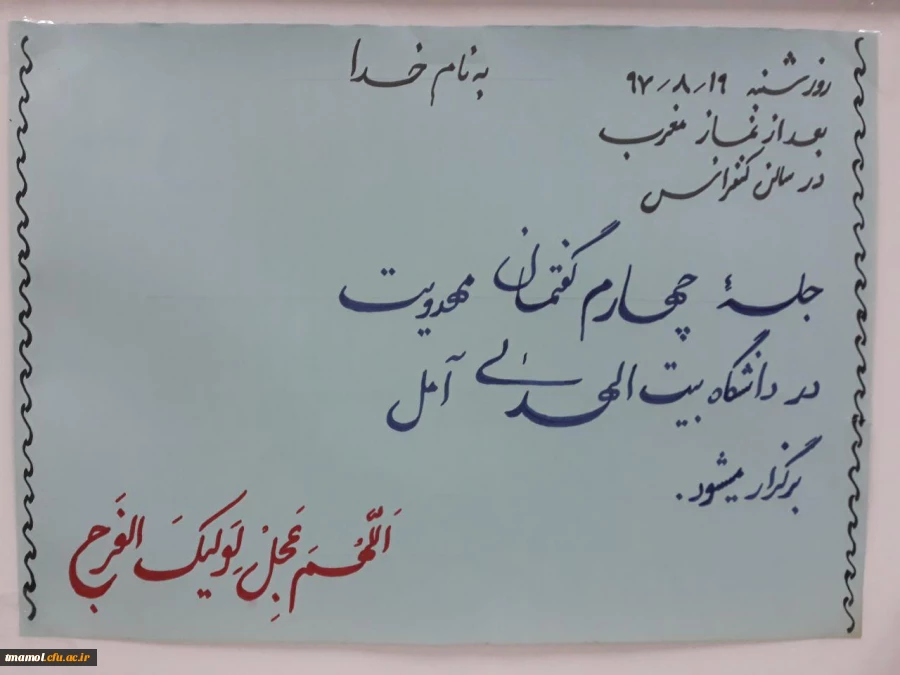 به نام خدا
روز شنبه ۹۷/۸/۱۹
بعد از نماز مغرب
در سالن کنفرانس
جلسۀ چهارم گفتمان مهدویت
در دانشگاه بیت الهدی آمل
برگزار میشود.
اَللّهُمَ عَجِل لِوَلیکَ الفَرَج
tmamol.cfu.ac.ir